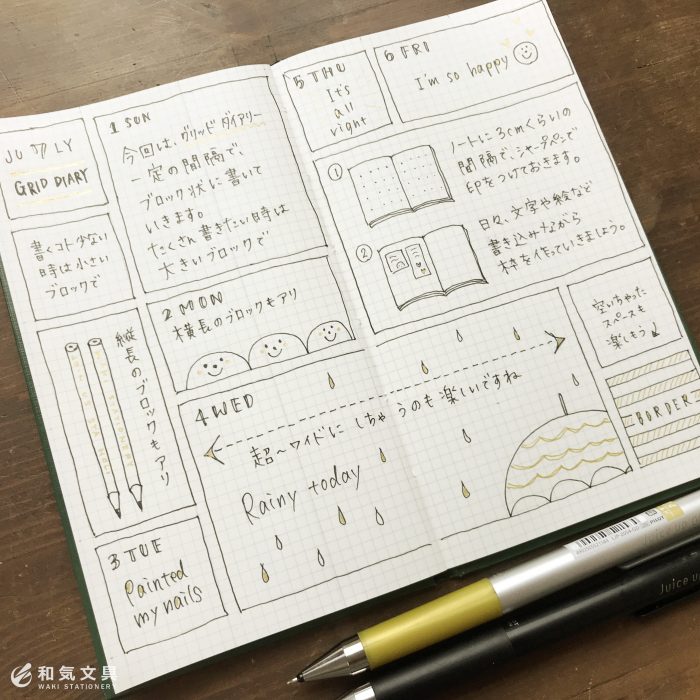 JULY
GRID DIARY
書くコト少ない
時は小さい
ブロックで
縦長のブロックもアリ
3 TUE
Painted
my nails
1 SUN
今回は、グリッドダイアリー
一定の間隔で、
ブロック状に書いて
いきます。
たくさん書きたい時は
大きいブロックで
2 MON
横長のブロックもアリ
4 WED
超〜ワイドにしちゃうのも楽しいですね
Rainy today
5 THU
It's
all
right
6 FRI
I'm so happy
①
ノートに3cmくらいの
間隔で、シャープペンで
印をつけておきます。
②
日々、文字や絵など
書き込みながら
枠を作っていきましょう。
空いちゃった
スペースも
楽しもう
BORDER
PILOT
Juice up
和気文具
WAKI STATIONERY